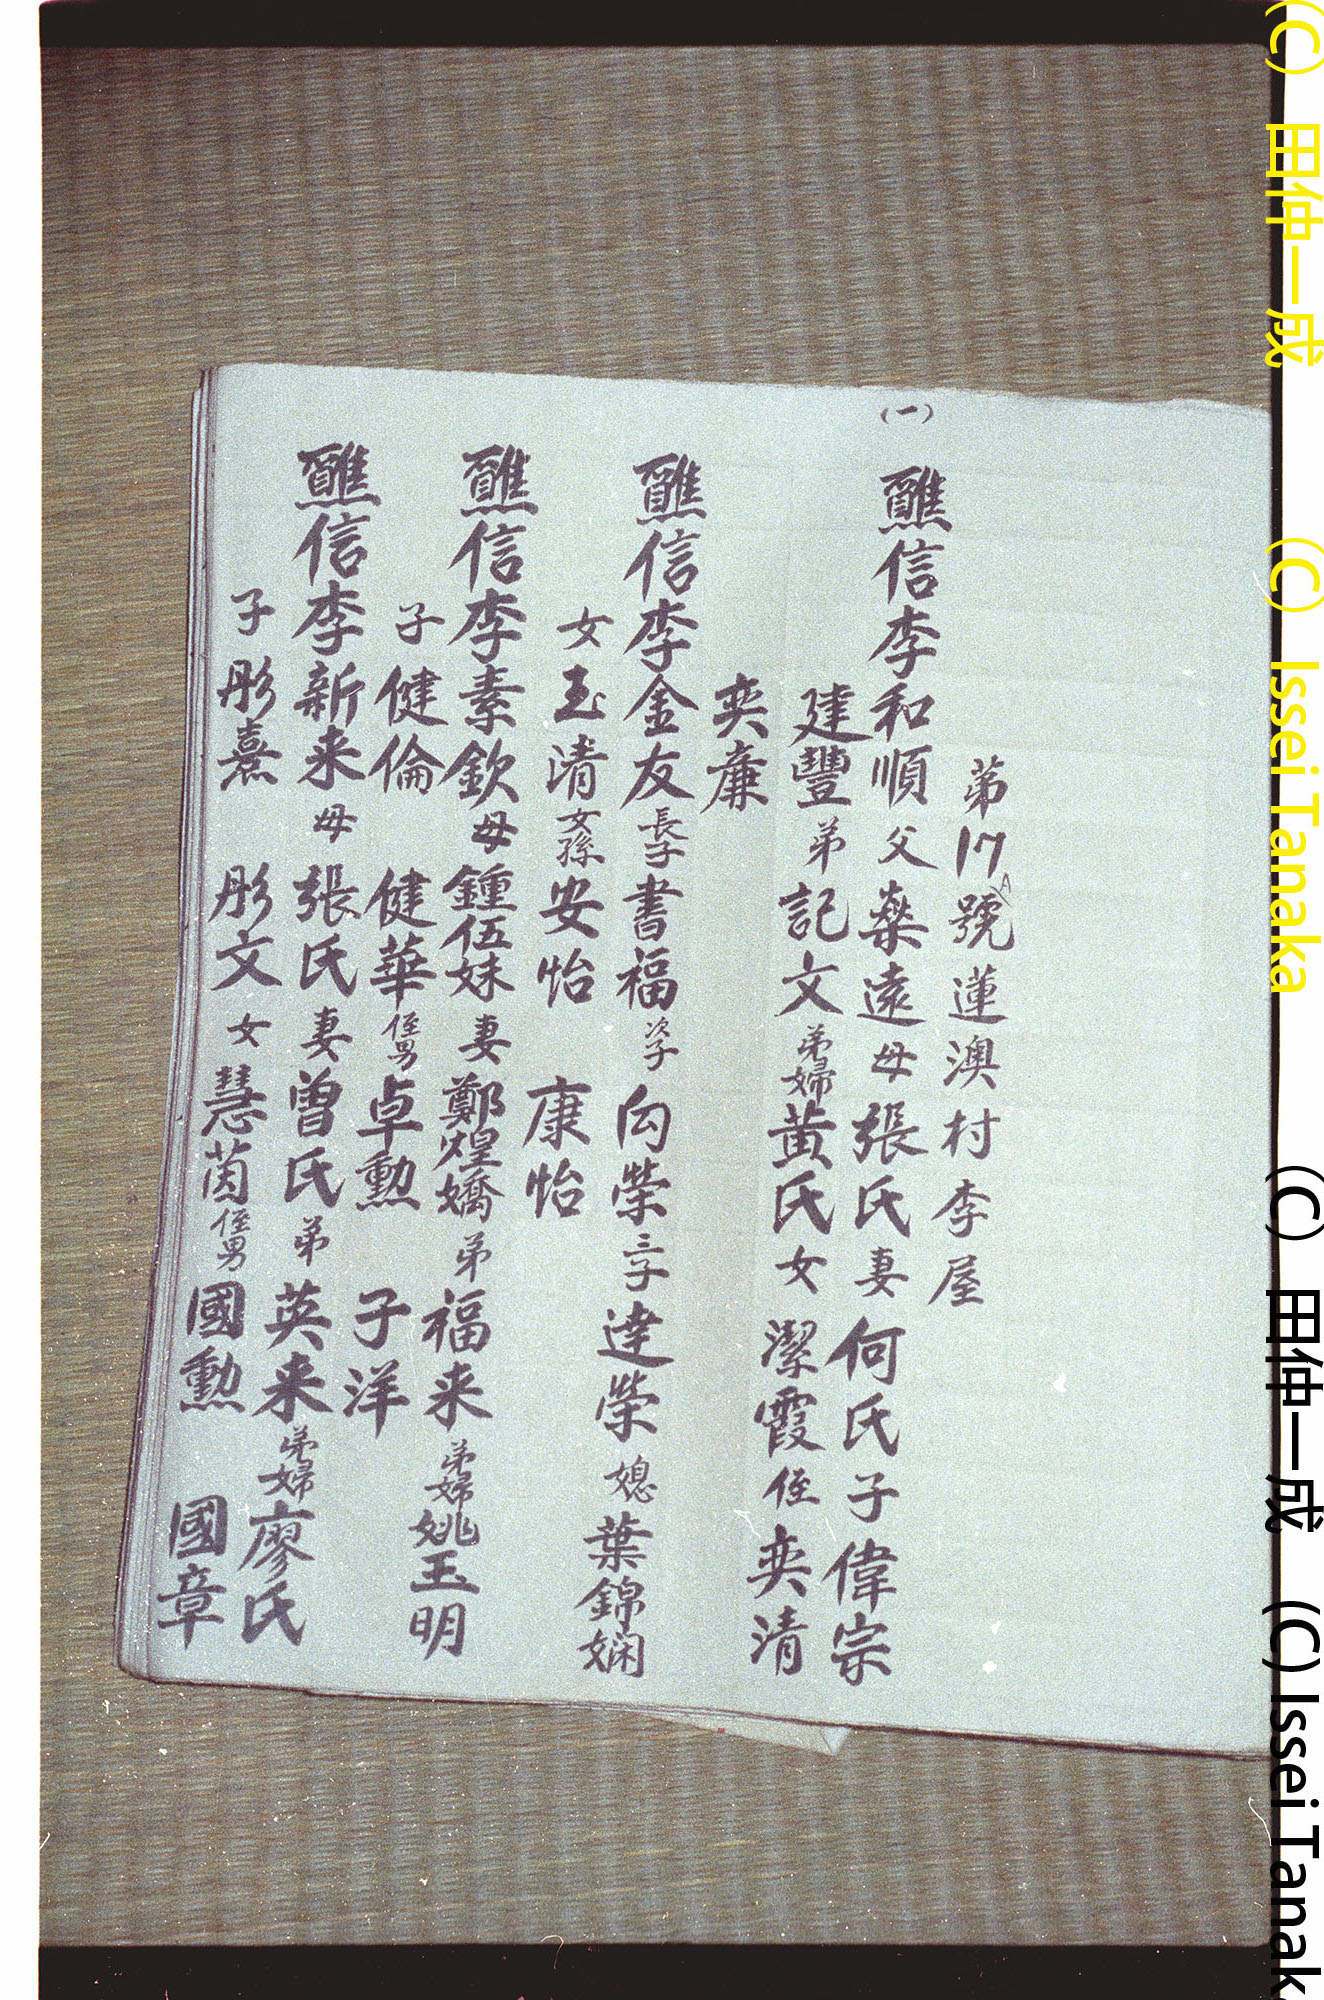 第17A號蓮澳村李屋
(一)
醮信李和順 父燊遠 母張氏 妻何氏 子偉宗
建豐 弟記文 弟婦黃氏 女潔霞 侄奕清
奕廉
醮信李金友 長子書福 次子向榮 三子達榮 媳葉錦嫻
女玉清 女孫安怡 康怡
醮信李素欽 母鍾伍妹 妻鄭煌嬌 弟福来 弟婦姚玉明
子健倫 健華 侄男卓勲 子洋
醮信李新来 母張氏 妻曾氏 弟英来 弟婦廖氏
子彤熹 彤文 女慧茵 侄男國勲 國章
(C) 田仲一成 (C) Issei Tanaka
(C) 田仲一成 (C) Issei Tanak